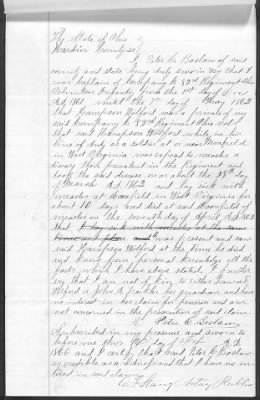 The State of Ohio
Hardin County ss
I Peter C. Boslow of said
county and state being duly sworn say that I
was Captain of Company G 82d Regiment Ohio
Volunteer Infantry from the 1st day of
AD 1861 until the 7th day of May 1862
that Sampson was a private of my
said Company G 82d Regiment Ohio Vol.
that said Sampson while in for
line of duty as a soldier at or near Moorefield
in West Virginia was exposed to measles a
disease then prevalent in the Regiment and
took the said disease on or about the 28th day
of March AD 1862 and lay sick with
measles at Moorefield in West Virginia for
about 10 days and died at said Moorefield of
measles on the seventh day of April AD 1862
that I lay sick with measles at the same
time and place and was present and saw
said Sampson at the time he died
and know from personal knowledge all the
facts which I have above stated. I further
say that I am not of kin to either
or guardian and have
no interest in her claim for pension and am not
concerned in the prosecution of said claim
Peter C. Boslow
Subscribed in my presence and sworn to
before me this day of AD
1866 and I certify that said Peter C. Boslow
is credible as a and that I have no in-
terest in said claim
Notary Public